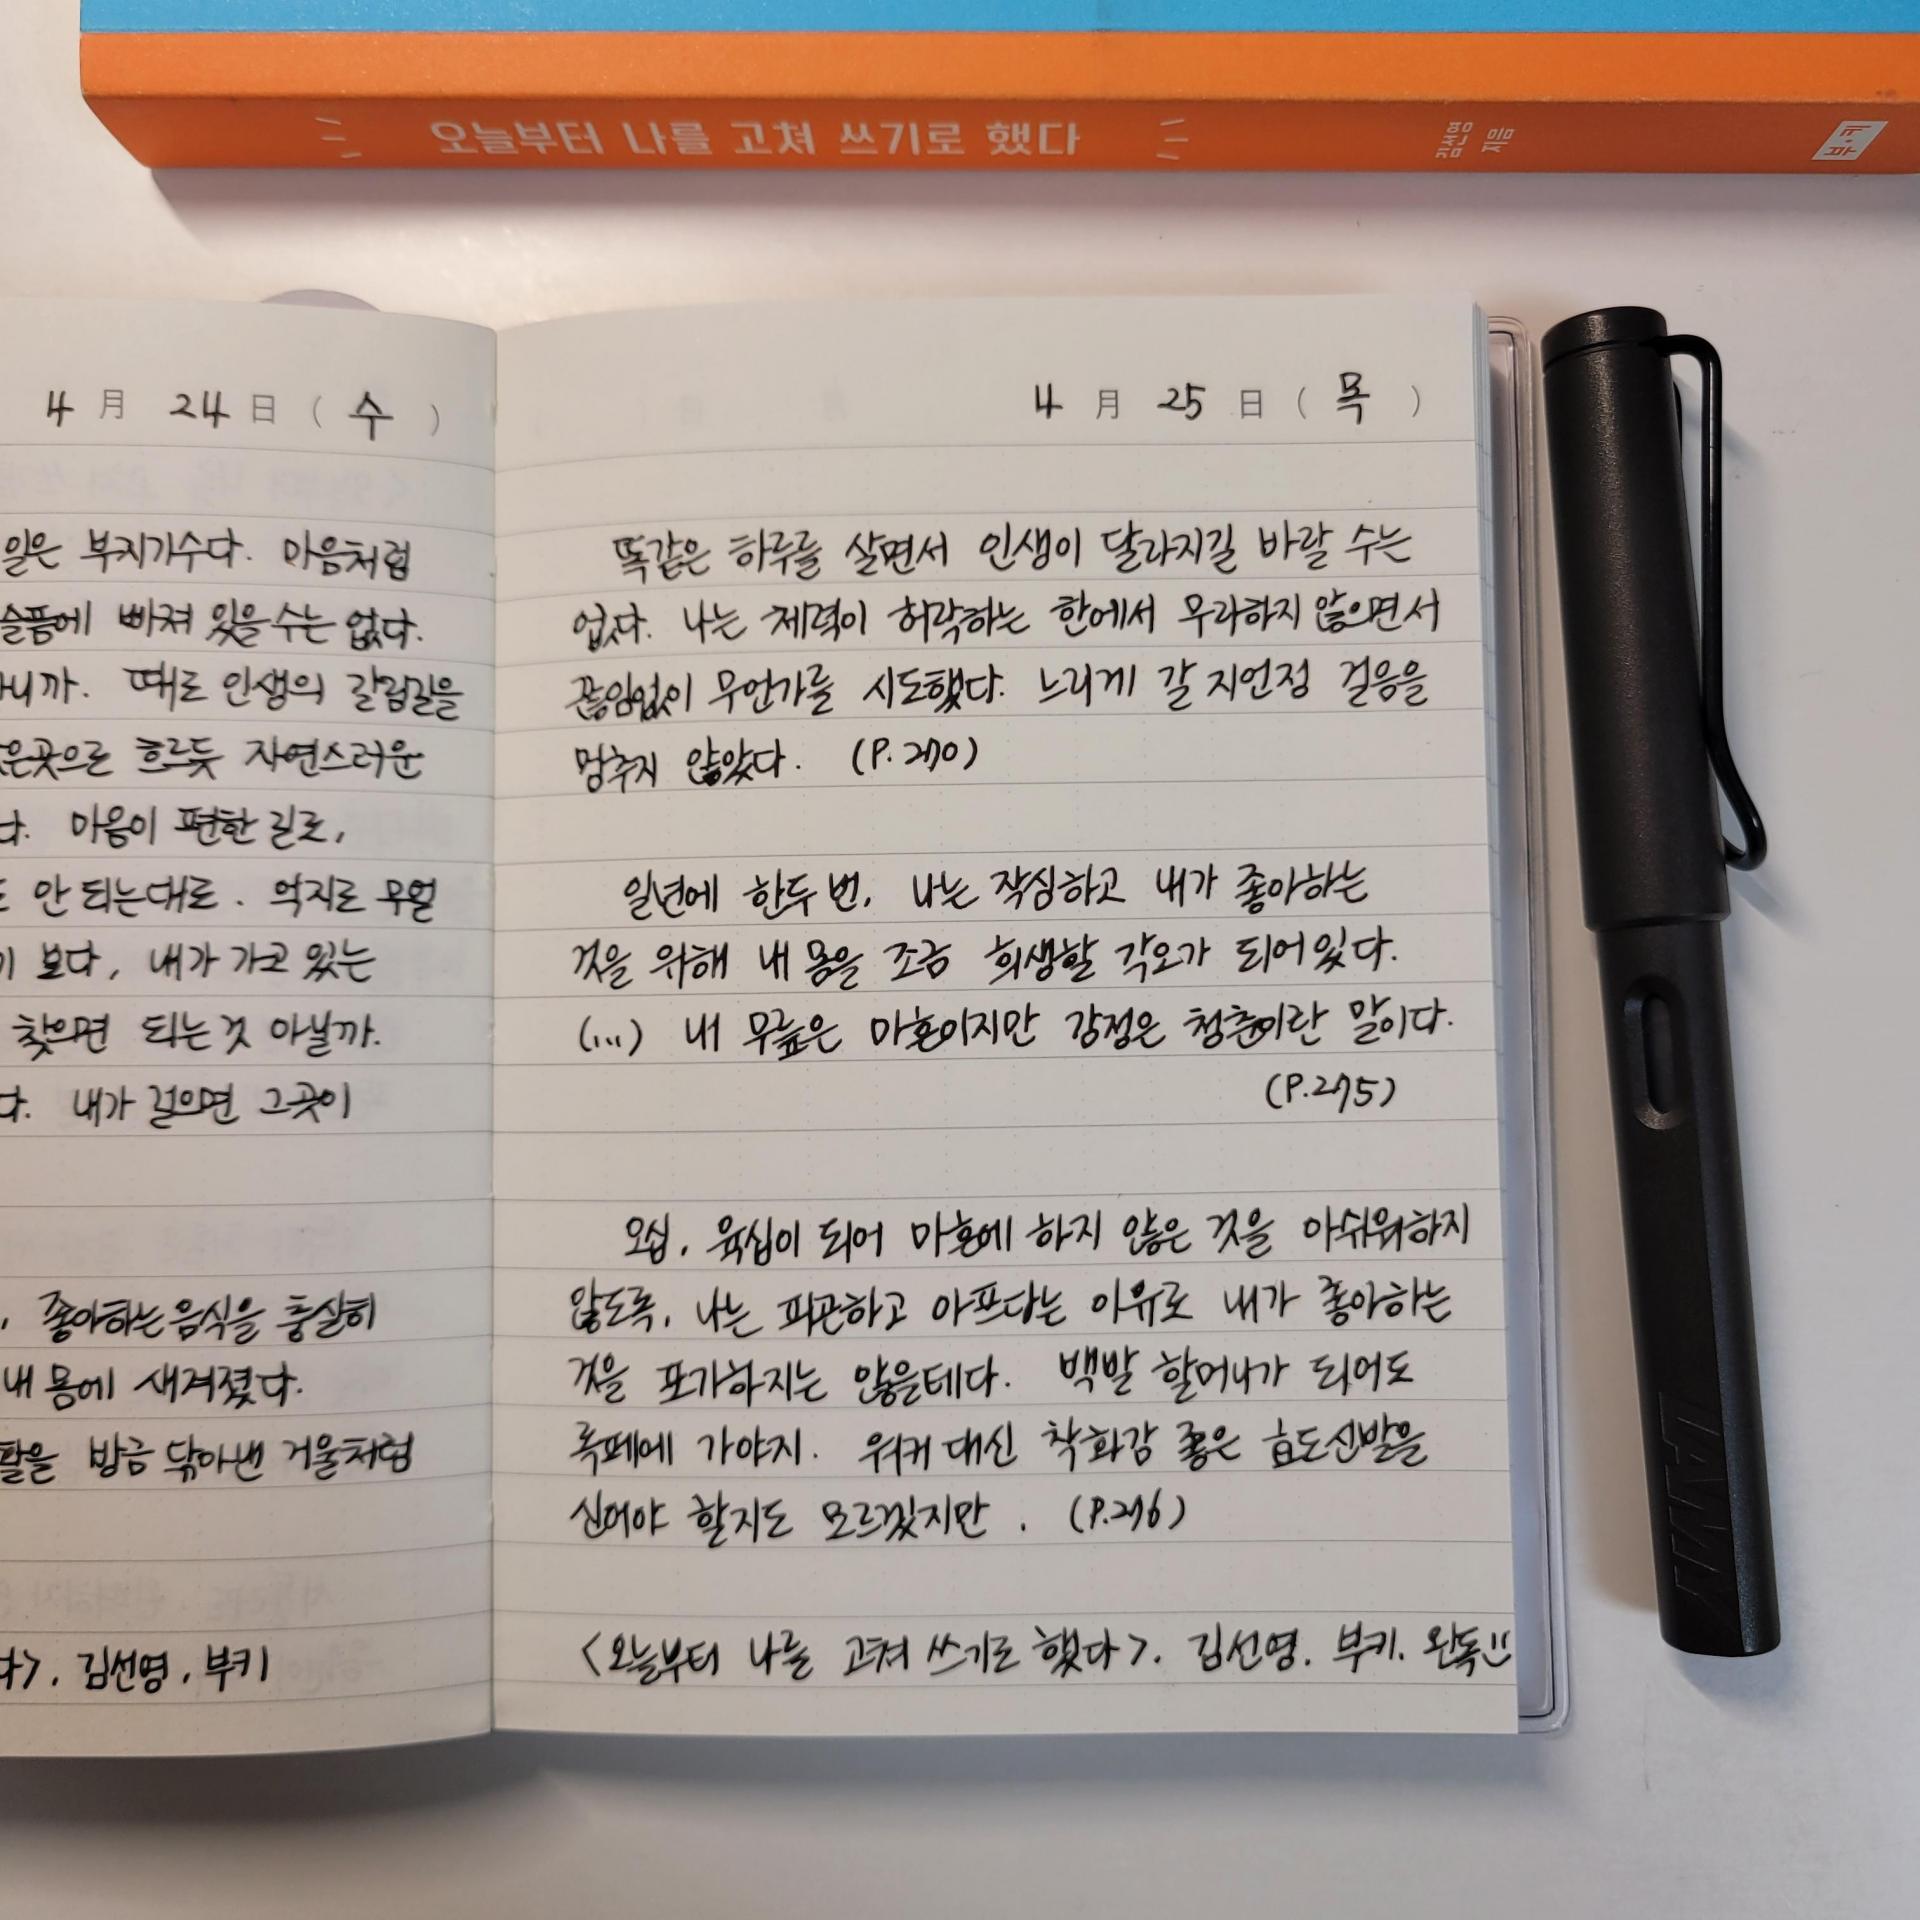 오늘부터 나를 고쳐 쓰기로 했다
김선영 지음
부·키
4 月 24 日 ( 수 )
일은 부지기수다. 마음처럼
슬픔에 빠져 있을 수는 없다.
니까. 때로 인생의 갈림길을
은곳으로 흐르듯 자연스러운
다. 마음이 편한 길로,
안 되는대로. 억지로 무얼
기 보다, 내가 가고 있는
찾으면 되는 것 아닐까.
다. 내가 걸으면 그곳이
, 좋아하는 음식을 충실히
내 몸에 새겨졌다.
팔을 방금 닦아낸 거울처럼
다>. 김선영. 부키
4 月 25 日 ( 목 )
똑같은 하루를 살면서 인생이 달라지길 바랄 수는
없다. 나는 체력이 허락하는 한에서 무리하지 않으면서
끊임없이 무언가를 시도했다. 느리게 갈지언정 걸음을
멈추지 않았다. (P. 270)
일년에 한두 번, 나는 작심하고 내가 좋아하는
것을 위해 내 몸을 조금 희생할 각오가 되어있다.
(...) 내 무릎은 마흔이지만 감정은 청춘이란 말이다.
(P.275)
오십, 육십이 되어 마흔에 하지 않은 것을 아쉬워하지
않도록, 나는 피곤하고 아프다는 이유로 내가 좋아하는
것을 포기하지는 않을테다. 백발 할머니가 되어도
록페에 가야지. 워커 대신 착화감 좋은 효도신발을
신어야 할지도 모르겠지만. (P.276)
<오늘부터 나를 고쳐 쓰기로 했다>. 김선영. 부키. 완독
LAMY